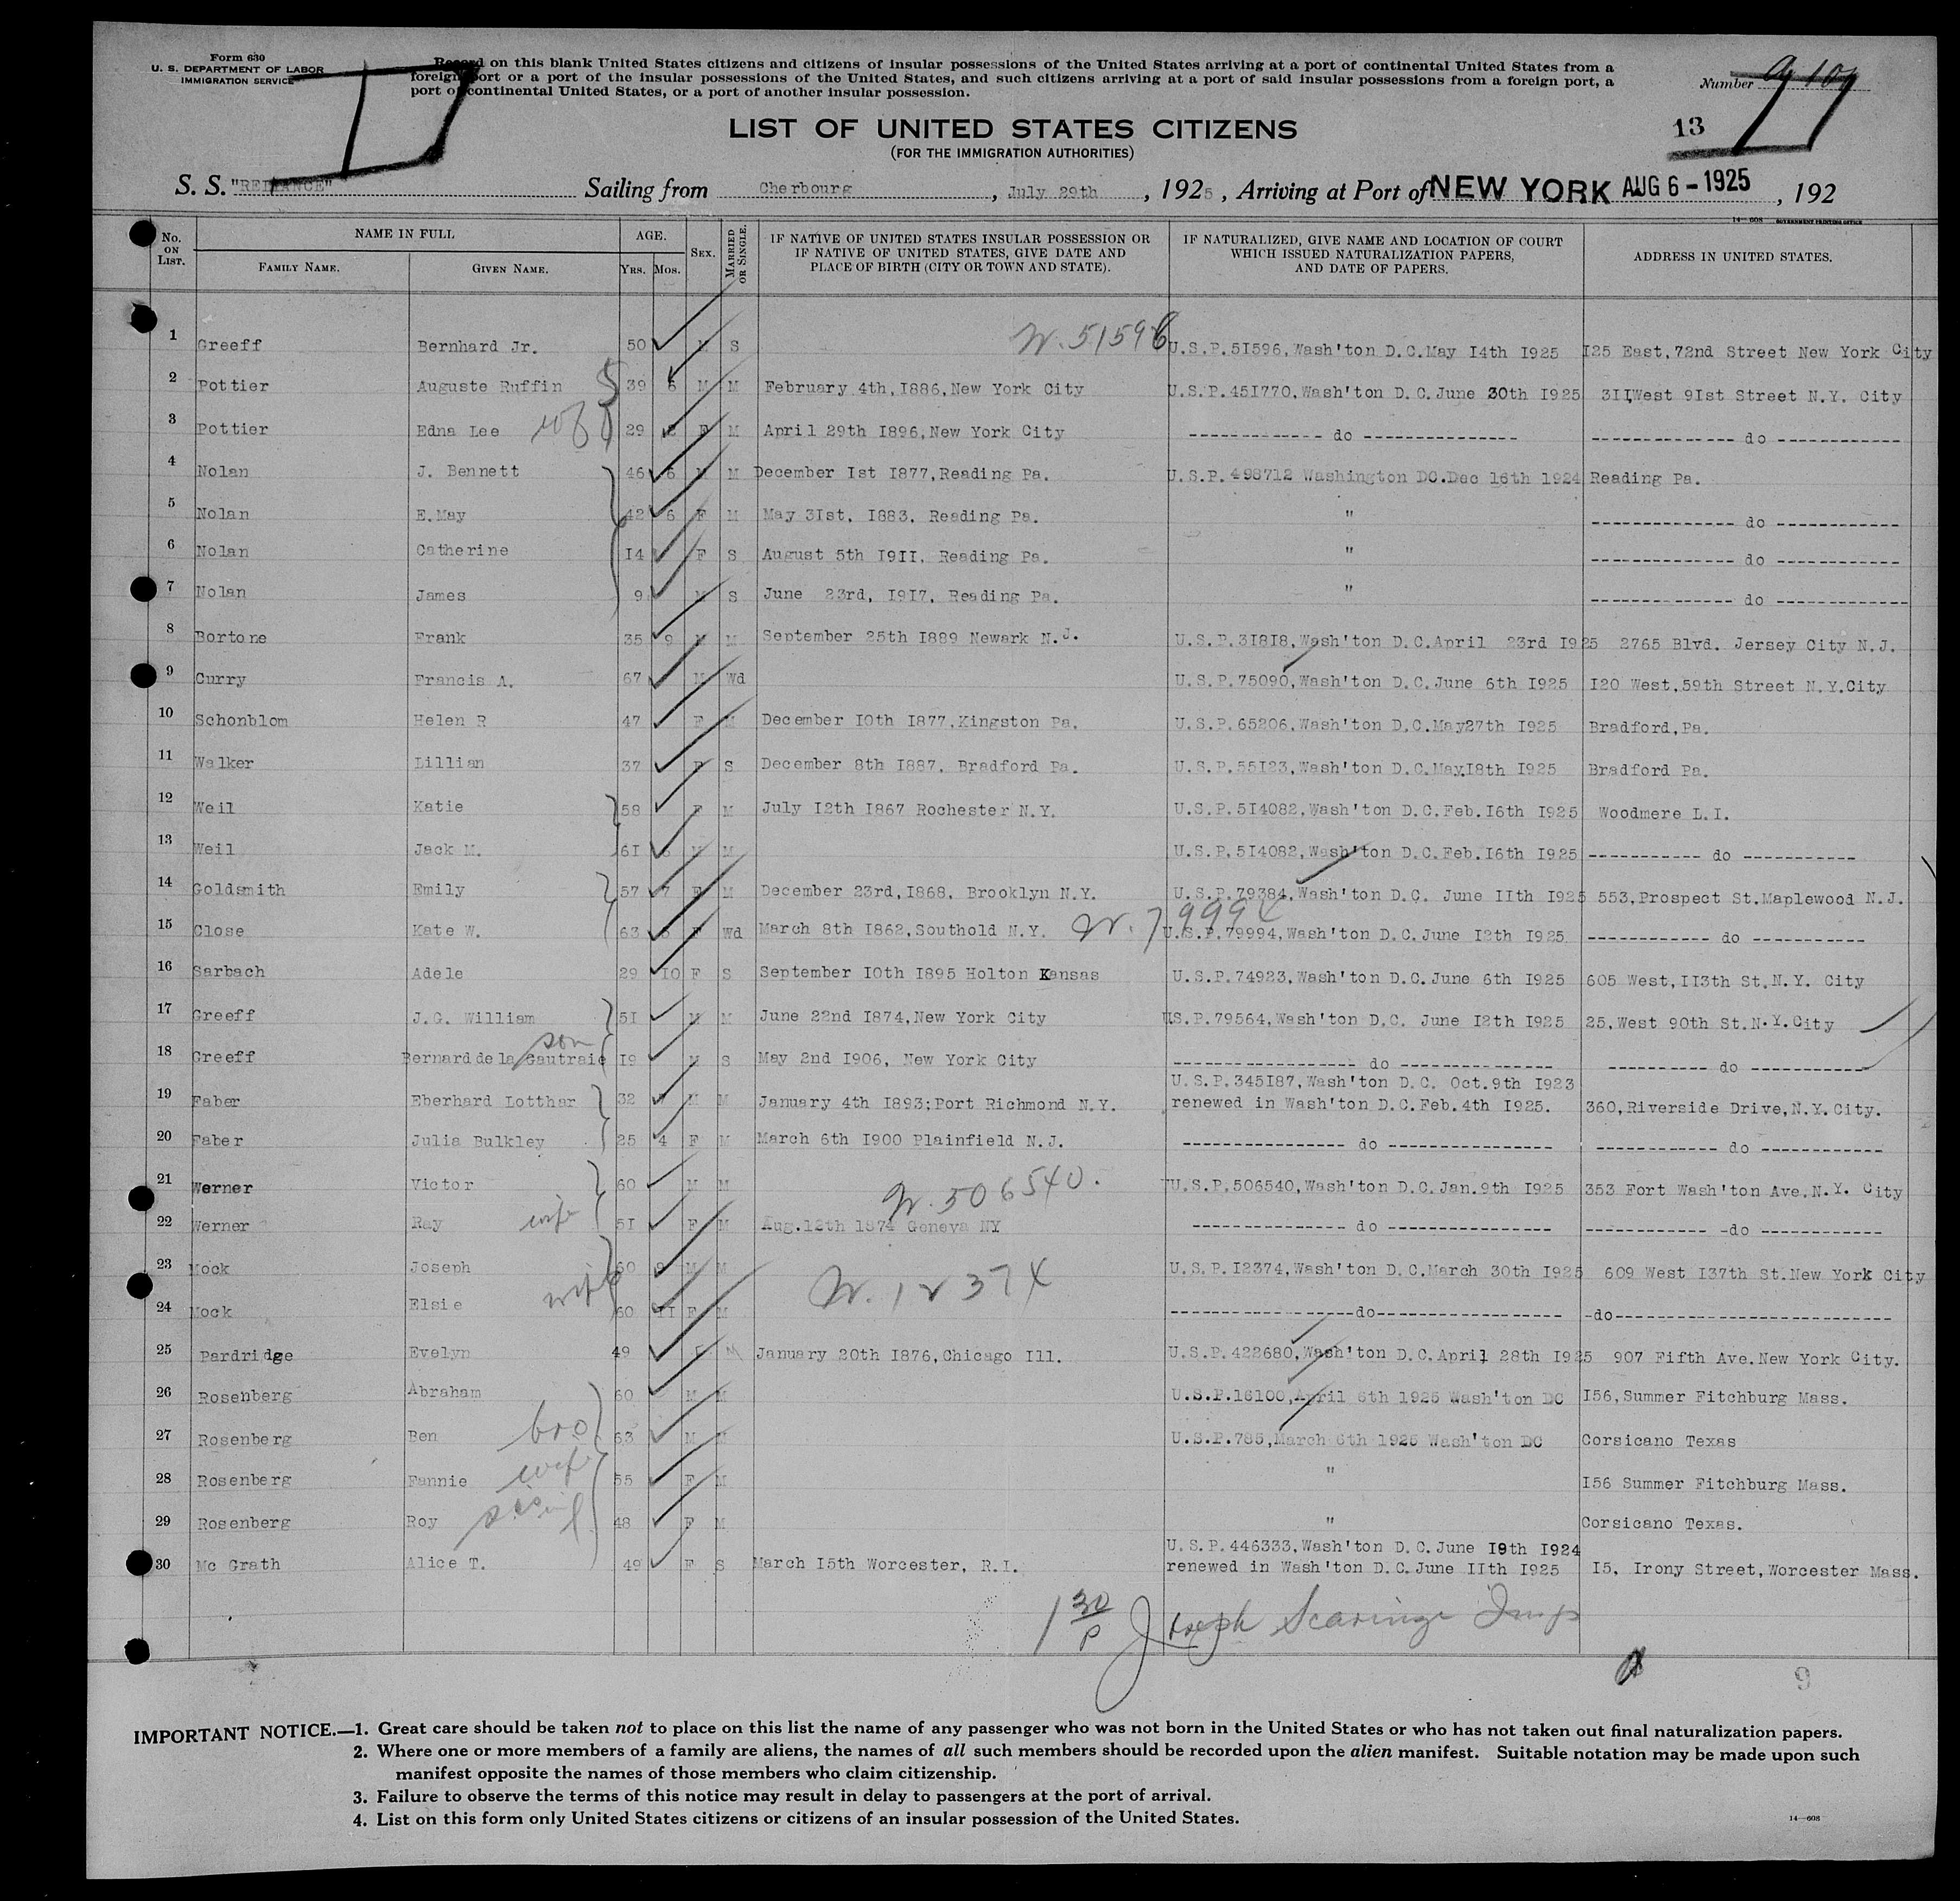 Form 630
U. S. DEPARTMENT OF LABOR
IMMIGRATION SERVICE
Record on this blank United States citizens and citizens of insular possessions of the United States arriving at a port of continental United States from a
foreign port or a port of the insular possessions of the United States, and such citizens arriving at a port of said insular possessions from a foreign port, a
port of continental United States, or a port of another insular possession.
Number
13
LIST OF UNITED STATES CITIZENS
(FOR THE IMMIGRATION AUTHORITIES)
S. S. "RELIANCE" Sailing from Cherbourg, July 29th, 1925, Arriving at Port of NEW YORK AUG 6 - 1925, 192
14—608 GOVERNMENT PRINTING OFFICE
No. ON LIST. NAME IN FULL FAMILY NAME. GIVEN NAME. AGE. YRS. MOS. SEX. MARRIED OR SINGLE. IF NATIVE OF UNITED STATES INSULAR POSSESSION OR IF NATIVE OF UNITED STATES, GIVE DATE AND PLACE OF BIRTH (CITY OR TOWN AND STATE). IF NATURALIZED, GIVE NAME AND LOCATION OF COURT WHICH ISSUED NATURALIZATION PAPERS, AND DATE OF PAPERS. ADDRESS IN UNITED STATES.
1 Greeff Bernhard Jr. 50 M S N. 51596 U.S.P.51596,Wash'ton D.C.May 14th 1925 125 East,72nd Street New York City
2 Pottier Auguste Ruffin 39 6 M M February 4th,1886,New York City U.S.P.451770,Wash'ton D.C.June 30th 1925 311,West 91st Street N.Y. City
3 Pottier Edna Lee wf 29 F M April 29th 1896,New York City do do
4 Nolan J. Bennett 46 6 M M December 1st 1877,Reading Pa. U.S.P.498712 Washington DC.Dec 16th 1924 Reading Pa.
5 Nolan E.May 42 6 F M May 31st, 1883, Reading Pa. " do
6 Nolan Catherine 14 F S August 5th 1911, Reading Pa. " do
7 Nolan James 9 M S June 23rd, 1917, Reading Pa. " do
8 Bortone Frank 35 9 M M September 25th 1889 Newark N.J. U.S.P.31818,Wash'ton D.C.April 23rd 1925 2765 Blvd. Jersey City N.J.
9 Curry Francis A. 67 M Wd U.S.P.75090,Wash'ton D.C.June 6th 1925 120 West,59th Street N.Y.City
10 Schonblom Helen R 47 F M December 10th 1877,Kingston Pa. U.S.P.65206,Wash'ton D.C.May27th 1925 Bradford,Pa.
11 Walker Lillian 37 F S December 8th 1887, Bradford Pa. U.S.P.55123,Wash'ton D.C.May18th 1925 Bradford Pa.
12 Weil Katie 58 F M July 12th 1867 Rochester N.Y. U.S.P.514082,Wash'ton D.C.Feb.16th 1925 Woodmere L.I.
13 Weil Jack M. 61 M M U.S.P.514082,Wash'ton D.C.Feb.16th 1925 do
14 Goldsmith Emily 57 7 F M December 23rd,1868, Brooklyn N.Y. U.S.P.79384,Wash'ton D.C. June 11th 1925 553,Prospect St.Maplewood N.J.
15 Close Kate W. 63 F Wd March 8th 1862,Southold N.Y. N. 79994 U.S.P.79994,Wash'ton D.C.June 12th 1925 do
16 Sarbach Adele 29 10 F S September 10th 1895 Holton Kansas U.S.P.74923,Wash'ton D.C.June 6th 1925 605 West,113th St.N.Y. City
17 Greeff J.G. William 51 M M June 22nd 1874,New York City U.S.P.79564,Wash'ton D.C. June 12th 1925 25,West 90th St.N.Y.City
18 Greeff Bernard de la Gautraie son 19 M S May 2nd 1906, New York City do do
19 Faber Eberhard Lotthar 32 7 M M January 4th 1893;Port Richmond N.Y. U.S.P.345187,Wash'ton D.C. Oct.9th 1923
renewed in Wash'ton D.C.Feb.4th 1925. 360,Riverside Drive,N.Y.City.
20 Faber Julia Bulkley 25 4 F M March 6th 1900 Plainfield N.J. do do
21 Werner Victor 60 M M N. 506540. U.S.P.506540,Wash'ton D.C.Jan.9th 1925 353 Fort Wash'ton Ave.N.Y. City
22 Werner Ray wife 51 F M Aug.12th 1874 Geneva NY do do
23 Mock Joseph 60 9 M M N. 12374 U.S.P.12374,Wash'ton D.C.March 30th 1925 609 West 137th St.New York City
24 Mock Elsie wife 60 11 F M do do
25 Pardridge Evelyn 49 F M January 20th 1876,Chicago Ill. U.S.P.422680,Wash'ton D.C.April 28th 1925 907 Fifth Ave.New York City.
26 Rosenberg Abraham 60 M M U.S.P.16100,April 6th 1925 Wash'ton DC 156,Summer Fitchburg Mass.
27 Rosenberg Ben bro 63 M M U.S.P.785,March 6th 1925 Wash'ton DC Corsicano Texas
28 Rosenberg Fannie wife 55 F M " 156 Summer Fitchburg Mass.
29 Rosenberg Roy 48 F M " Corsicano Texas.
30 Mc Grath Alice T. 49 F S March 15th Worcester, R.I. U.S.P.446333,Wash'ton D.C.June 19th 1924
renewed in Wash'ton D.C.June 11th 1925 15, Irony Street,Worcester Mass.
1 30 P Joseph Scaringe Insp
9
IMPORTANT NOTICE.—1. Great care should be taken not to place on this list the name of any passenger who was not born in the United States or who has not taken out final naturalization papers.
2. Where one or more members of a family are aliens, the names of all such members should be recorded upon the alien manifest. Suitable notation may be made upon such
manifest opposite the names of those members who claim citizenship.
3. Failure to observe the terms of this notice may result in delay to passengers at the port of arrival.
4. List on this form only United States citizens or citizens of an insular possession of the United States.
14—608